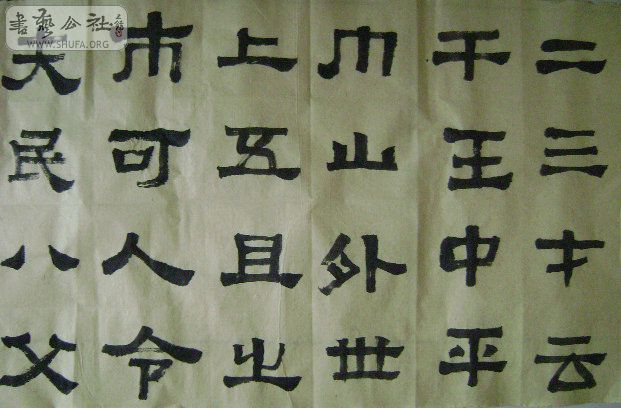 書藝公社
WWW.SHUFA.ORG
二三才云
干王中平
巾山外世
上五且之
市可人令
民八父